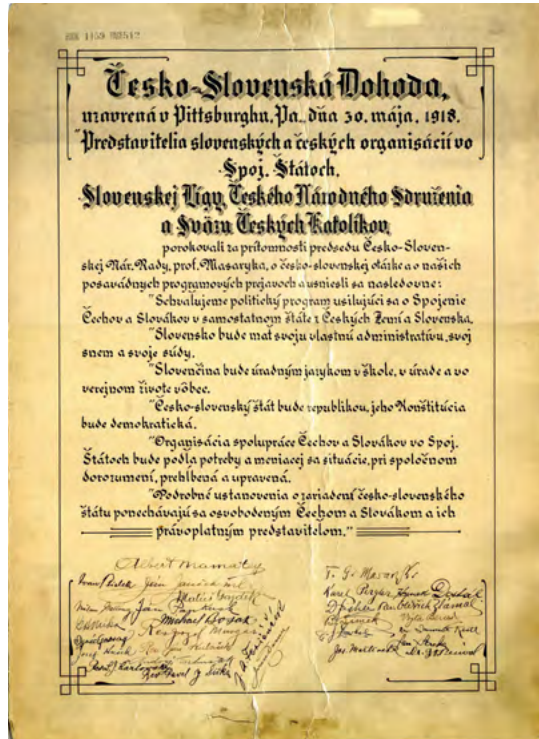 Česko-Slovenská Dohoda,
uzavrená v Pittsburghu, Pa., dňa 30. mája, 1918.
"Predstavitelia slovenských a českých organisácií vo
Spoj. Štátoch,
Slovenskej Ligy, Českého Národného Sdruženia
a Sväzu Českých Katolíkov,
porokovali za prítomnosti predsedu Česko-Sloven-
skej Nár. Rady, prof. Masaryka, o česko-slovenskej otázke a o našich
posavádnych programových prejavoch a usniesli sa nasledovne:
"Schvaľujeme politický program usilujúci sa o Spojenie
Čechov a Slovákov v samostatnom štáte z Českých Zemí a Slovenska.
"Slovensko bude mať svoju vlastnú administratívu, svoj
snem a svoje súdy.
"Slovenčina bude úradným jazykom v škole, v úrade a vo
verejnom živote vôbec.
"Česko-slovenský štát bude republikou, jeho Konštitúcia
bude demokratická.
"Organisácia spolupráce Čechov a Slovákov vo Spoj.
Štátoch bude podľa potreby a meniacej sa situácie, pri spoločnom
dorozumení, prehĺbená a upravená.
"Podrobné ustanovenia o zariadení česko-slovenského
štátu ponechávajú sa osvobodeným Čechom a Slovákom a ich
právoplatným predstaviteľom."
Albert Mamatey
T. G. Masaryk
Ivan Bielek Ján Janček ml.
Matúš Gajdoš
Michael Bosák
Karel Pergler Hynek Dostál